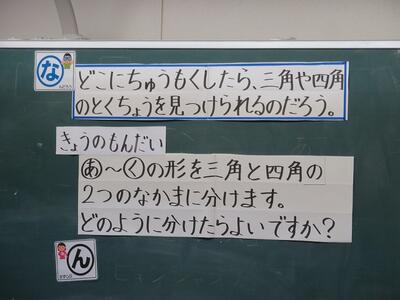 な
どこにちゅうもくしたら、三角や四角
のとくちょうを見つけられるのだろう。
きょうのもんだい
あ～くの形を三角と四角の
2つのなかまに分けます。
どのように分けたらよいですか？
ん